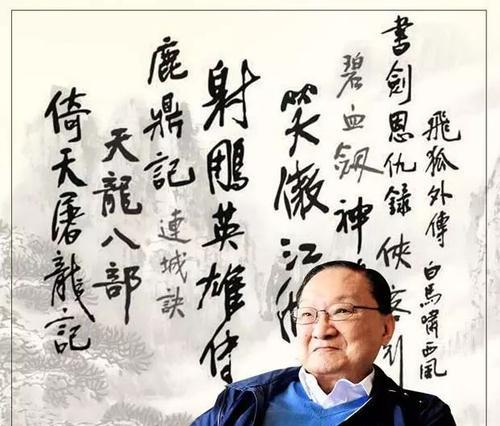 飛狐外傳
白馬嘯西風
書劍恩仇錄
俠客
碧血劔
神
笑傲江
射鵰英雄傳
鹿鼎記
連城訣
天龍八部
倚天屠龍記